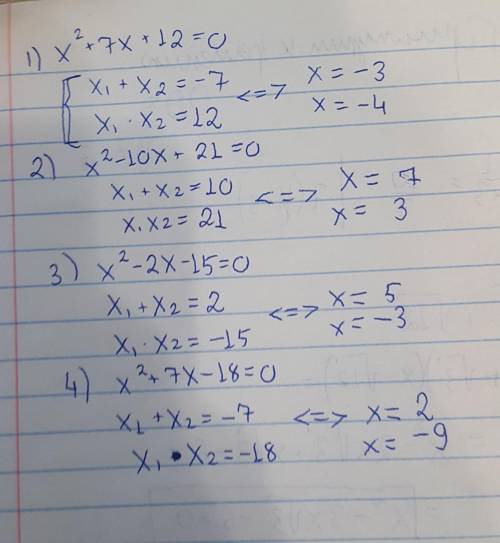 1) x²+7x+12=0
x₁ + x₂ = -7 <=> x = -3
x₁ · x₂ = 12 x = -4
2) x²-10x+21=0
x₁ + x₂ = 10 <=> x = 7
x₁ x₂ = 21 x = 3
3) x²-2x-15=0
x₁ + x₂ = 2 <=> x = 5
x₁ · x₂ = -15 x = -3
4) x²+7x-18=0
x₁ + x₂ = -7 <=> x = 2
x₁ · x₂ = -18 x = -9